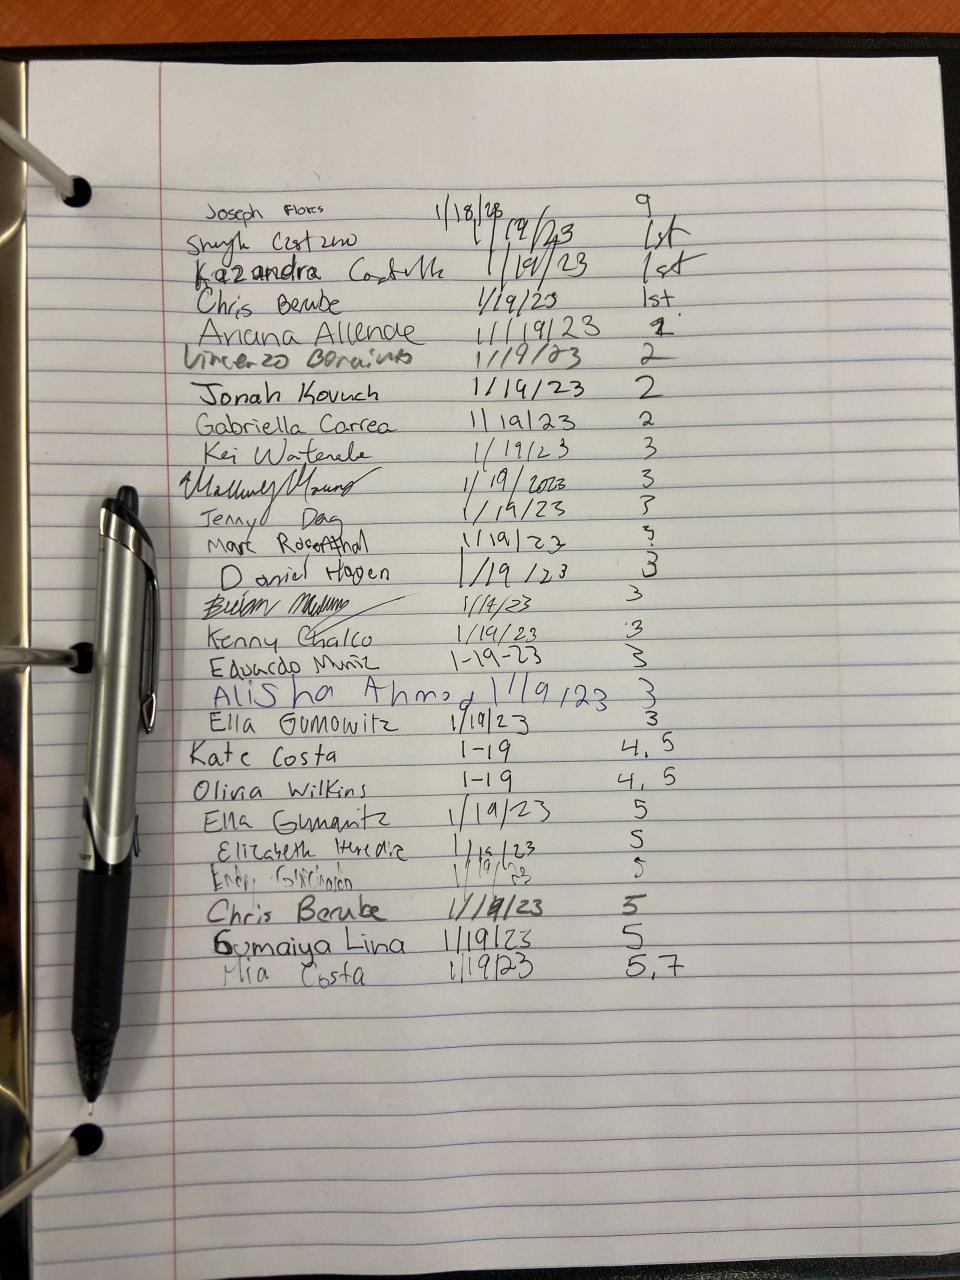 Joseph Flores 1/18/23 9
1/19/23 1st
Kazandra 1/19/23 1st
Chris Berube 1/19/23 1st
Ariana Allende 1/19/23 2
Vincenzo 1/19/23 2
Jonah Kovach 1/19/23 2
Gabriella Correa 1/19/23 2
Kei 1/19/23 3
1/19/2023 3
Jenny 1/19/23 3
Marc Rosenthal 1/19/23 3
Daniel Hagen 1/19/23 3
Brian 1/19/23 3
Kenny Chalco 1/19/23 3
Eduardo Muñiz 1-19-23 3
Alisha Ahmad 1/19/23 3
Ella Gomowitz 1/19/23 3
Kate Costa 1-19 4, 5
Olivia Wilkins 1-19 4, 5
Ella 1/19/23 5
Elizabeth Heredia 1/19/23 5
1/19/23 5
Chris Berube 1/19/23 5
Sumaiya Lina 1/19/23 5
Mia Costa 1/19/23 5,7